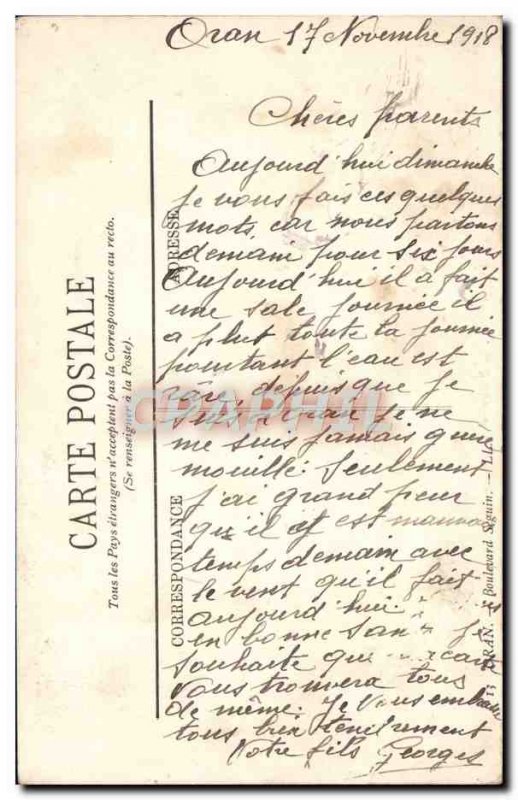 Oran 17 Novembre 1918
Chères parents
Aujourd'hui dimanche
je vous fais ces quelques
mots, car nous partons
demain pour six jours
Aujourd'hui il a fait
une sale journée il
a plut toute la journée
pourtant l'eau est
rare, depuis que je
suis a oran je ne
me suis jamais
mouillé. Seulement
j'ai grand peur
qu'il est mauvais
temps demain avec
le vent qu'il fait
aujourd'hui
en bonne santé je
souhaite que
vous trouvera tous
de même. Je vous embrasse
tous bien tendrement
Votre fils Georges
CARTE POSTALE
Tous les Pays étrangers n'acceptent pas la Correspondance au recto.
(Se renseigner à la Poste).
CORRESPONDANCE
ADRESSE
ORAN. Boulevard Séguin. - LL.